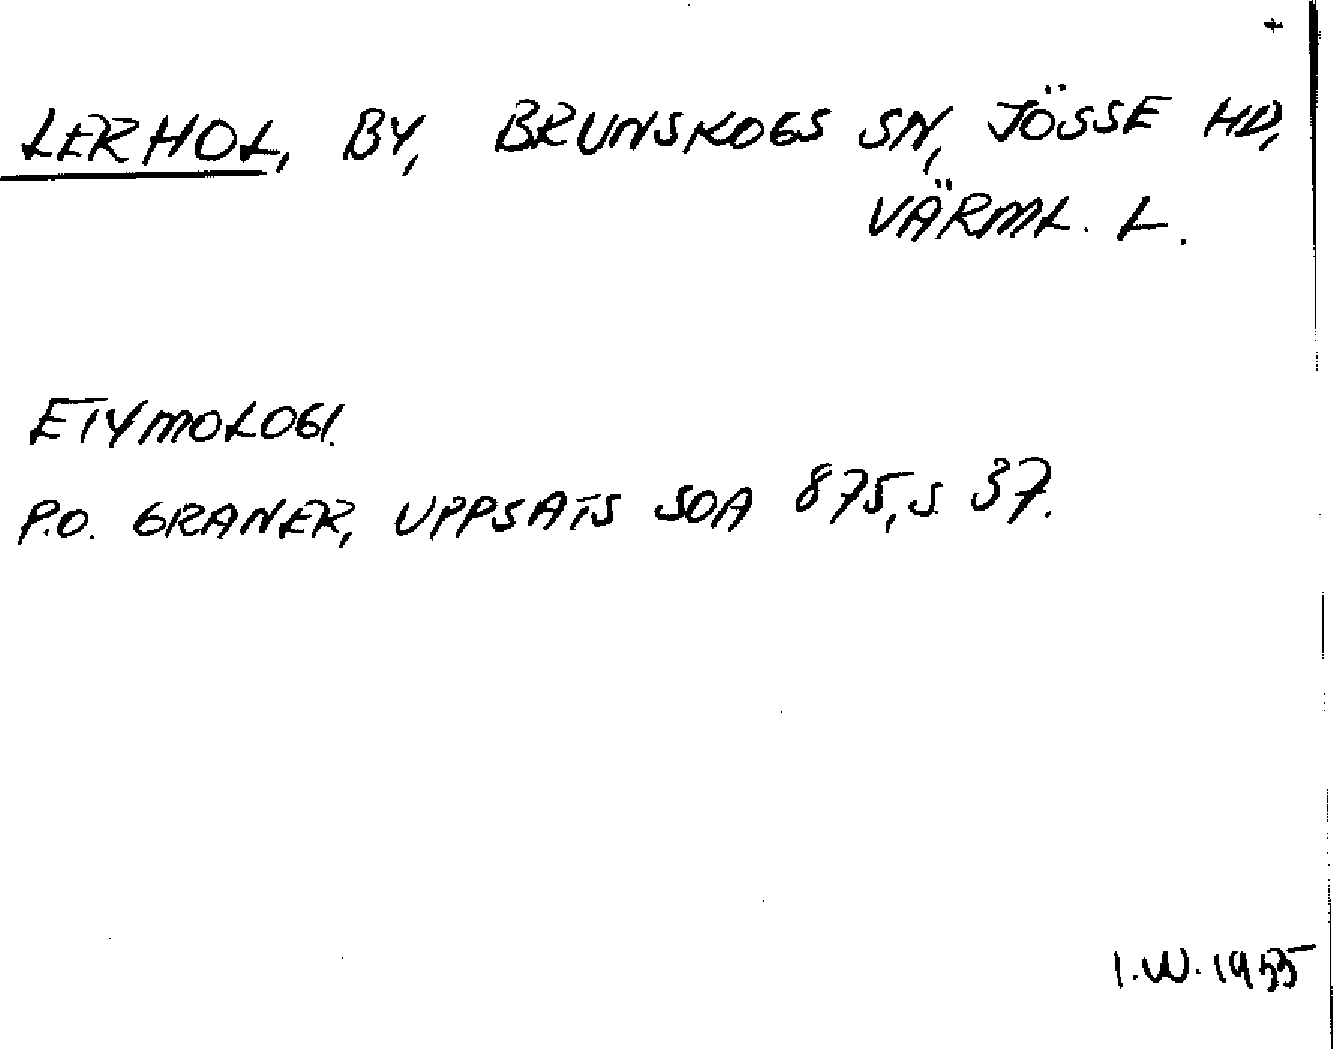 LERHOL, BY, BRUNSKOGS SN, JÖSSE HD,
VÄRML. L.
ETYMOLOGI.
P.O. GRANER, UPPSATS SOA 875, S. 37.
I.W. 1955